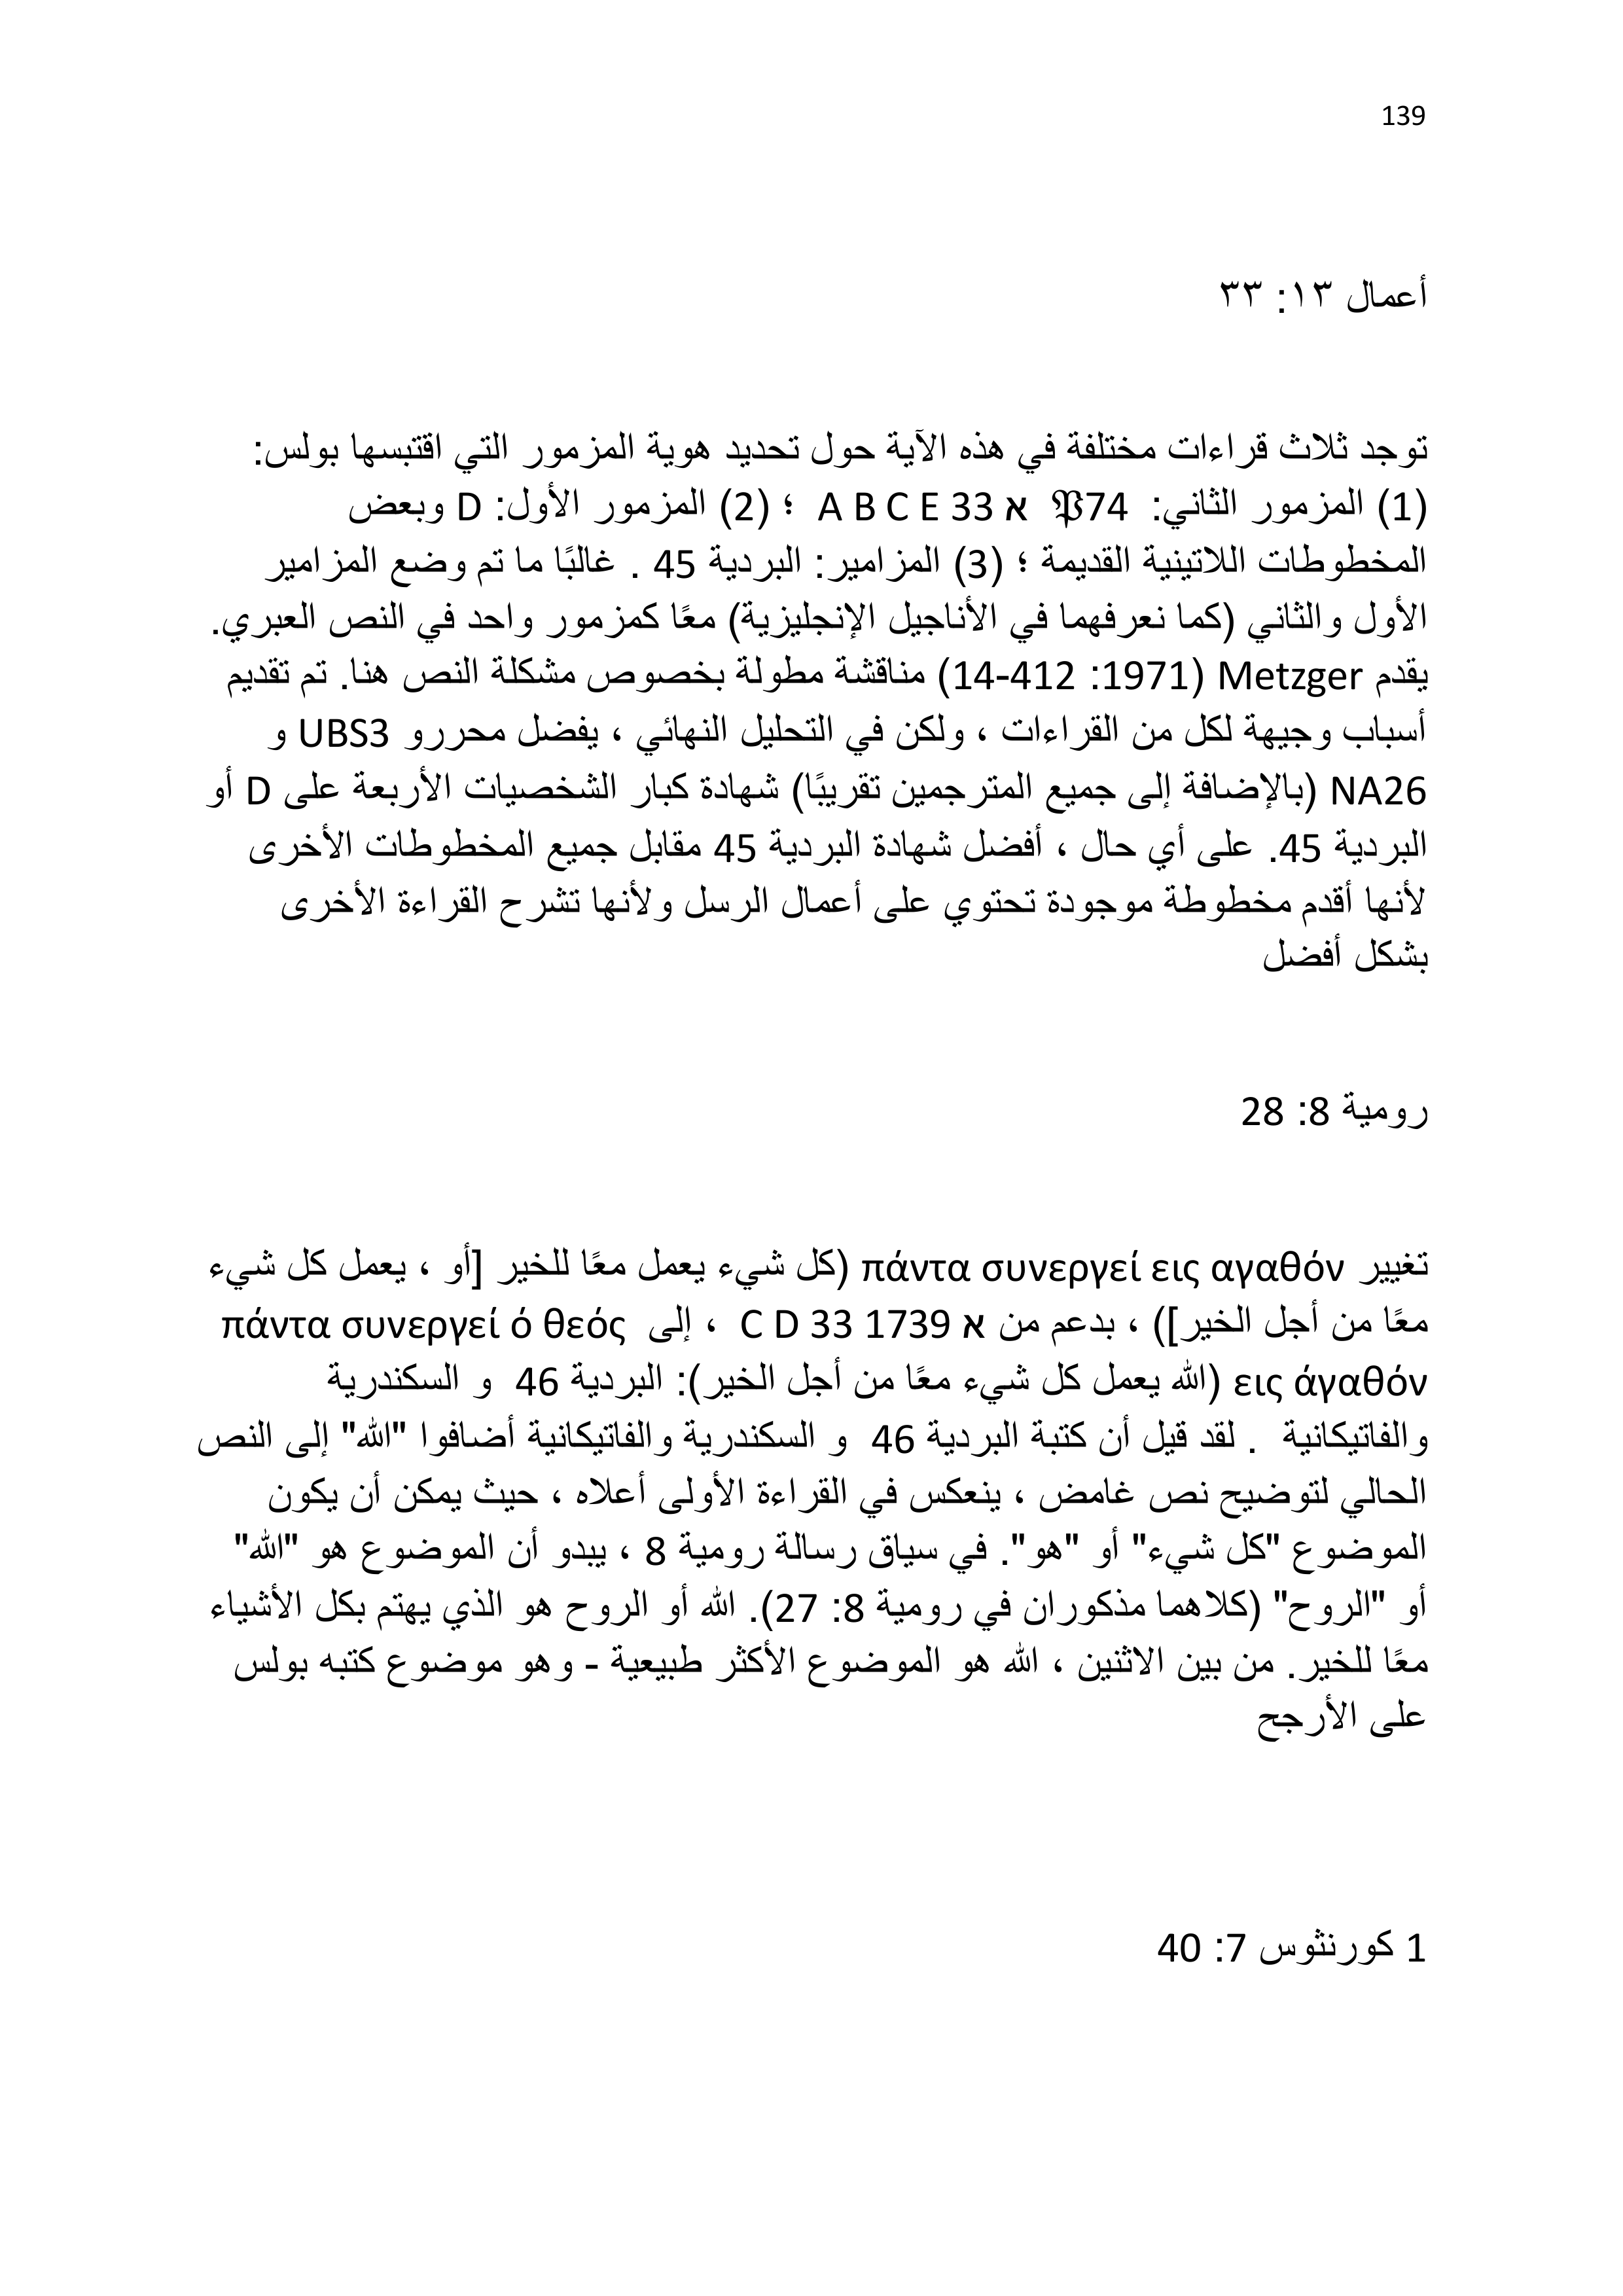 139
أعمال ١٣: ٣٣
توجد ثلاث قراءات مختلفة في هذه الآية حول تحديد هوية المزمور التي اقتبسها بولس:
(1) المزمور الثاني: 𝔓74 א A B C E 33 ؛ (2) المزمور الأول: D وبعض
المخطوطات اللاتينية القديمة ؛ (3) المزامير: البردية 45 . غالبًا ما تم وضع المزامير
الأول والثاني (كما نعرفهما في الأناجيل الإنجليزية) معًا كمزمور واحد في النص العبري.
يقدم Metzger (1971: 412-14) مناقشة مطولة بخصوص مشكلة النص هنا. تم تقديم
أسباب وجيهة لكل من القراءات ، ولكن في التحليل النهائي ، يفضل محررو UBS3 و
NA26 (بالإضافة إلى جميع المترجمين تقريبًا) شهادة كبار الشخصيات الأربعة على D أو
البردية 45. على أي حال ، أفضل شهادة البردية 45 مقابل جميع المخطوطات الأخرى
لأنها أقدم مخطوطة موجودة تحتوي على أعمال الرسل ولأنها تشرح القراءة الأخرى
بشكل أفضل
رومية 8: 28
تغيير πάντα συνεργεί εις αγαθόν (كل شيء يعمل معًا للخير [أو ، يعمل كل شيء
معًا من أجل الخير]) ، بدعم من א C D 33 1739 ، إلى πάντα συνεργεί ό θεός
εις άγαθόν (الله يعمل كل شيء معًا من أجل الخير): البردية 46 و السكندرية
والفاتيكانية . لقد قيل أن كتبة البردية 46 و السكندرية والفاتيكانية أضافوا "الله" إلى النص
الحالي لتوضيح نص غامض ، ينعكس في القراءة الأولى أعلاه ، حيث يمكن أن يكون
الموضوع "كل شيء" أو "هو". في سياق رسالة رومية 8 ، يبدو أن الموضوع هو "الله"
أو "الروح" (كلاهما مذكوران في رومية 8: 27). الله أو الروح هو الذي يهتم بكل الأشياء
معًا للخير. من بين الاثنين ، الله هو الموضوع الأكثر طبيعية - وهو موضوع كتبه بولس
على الأرجح
1 كورنثوس 7: 40